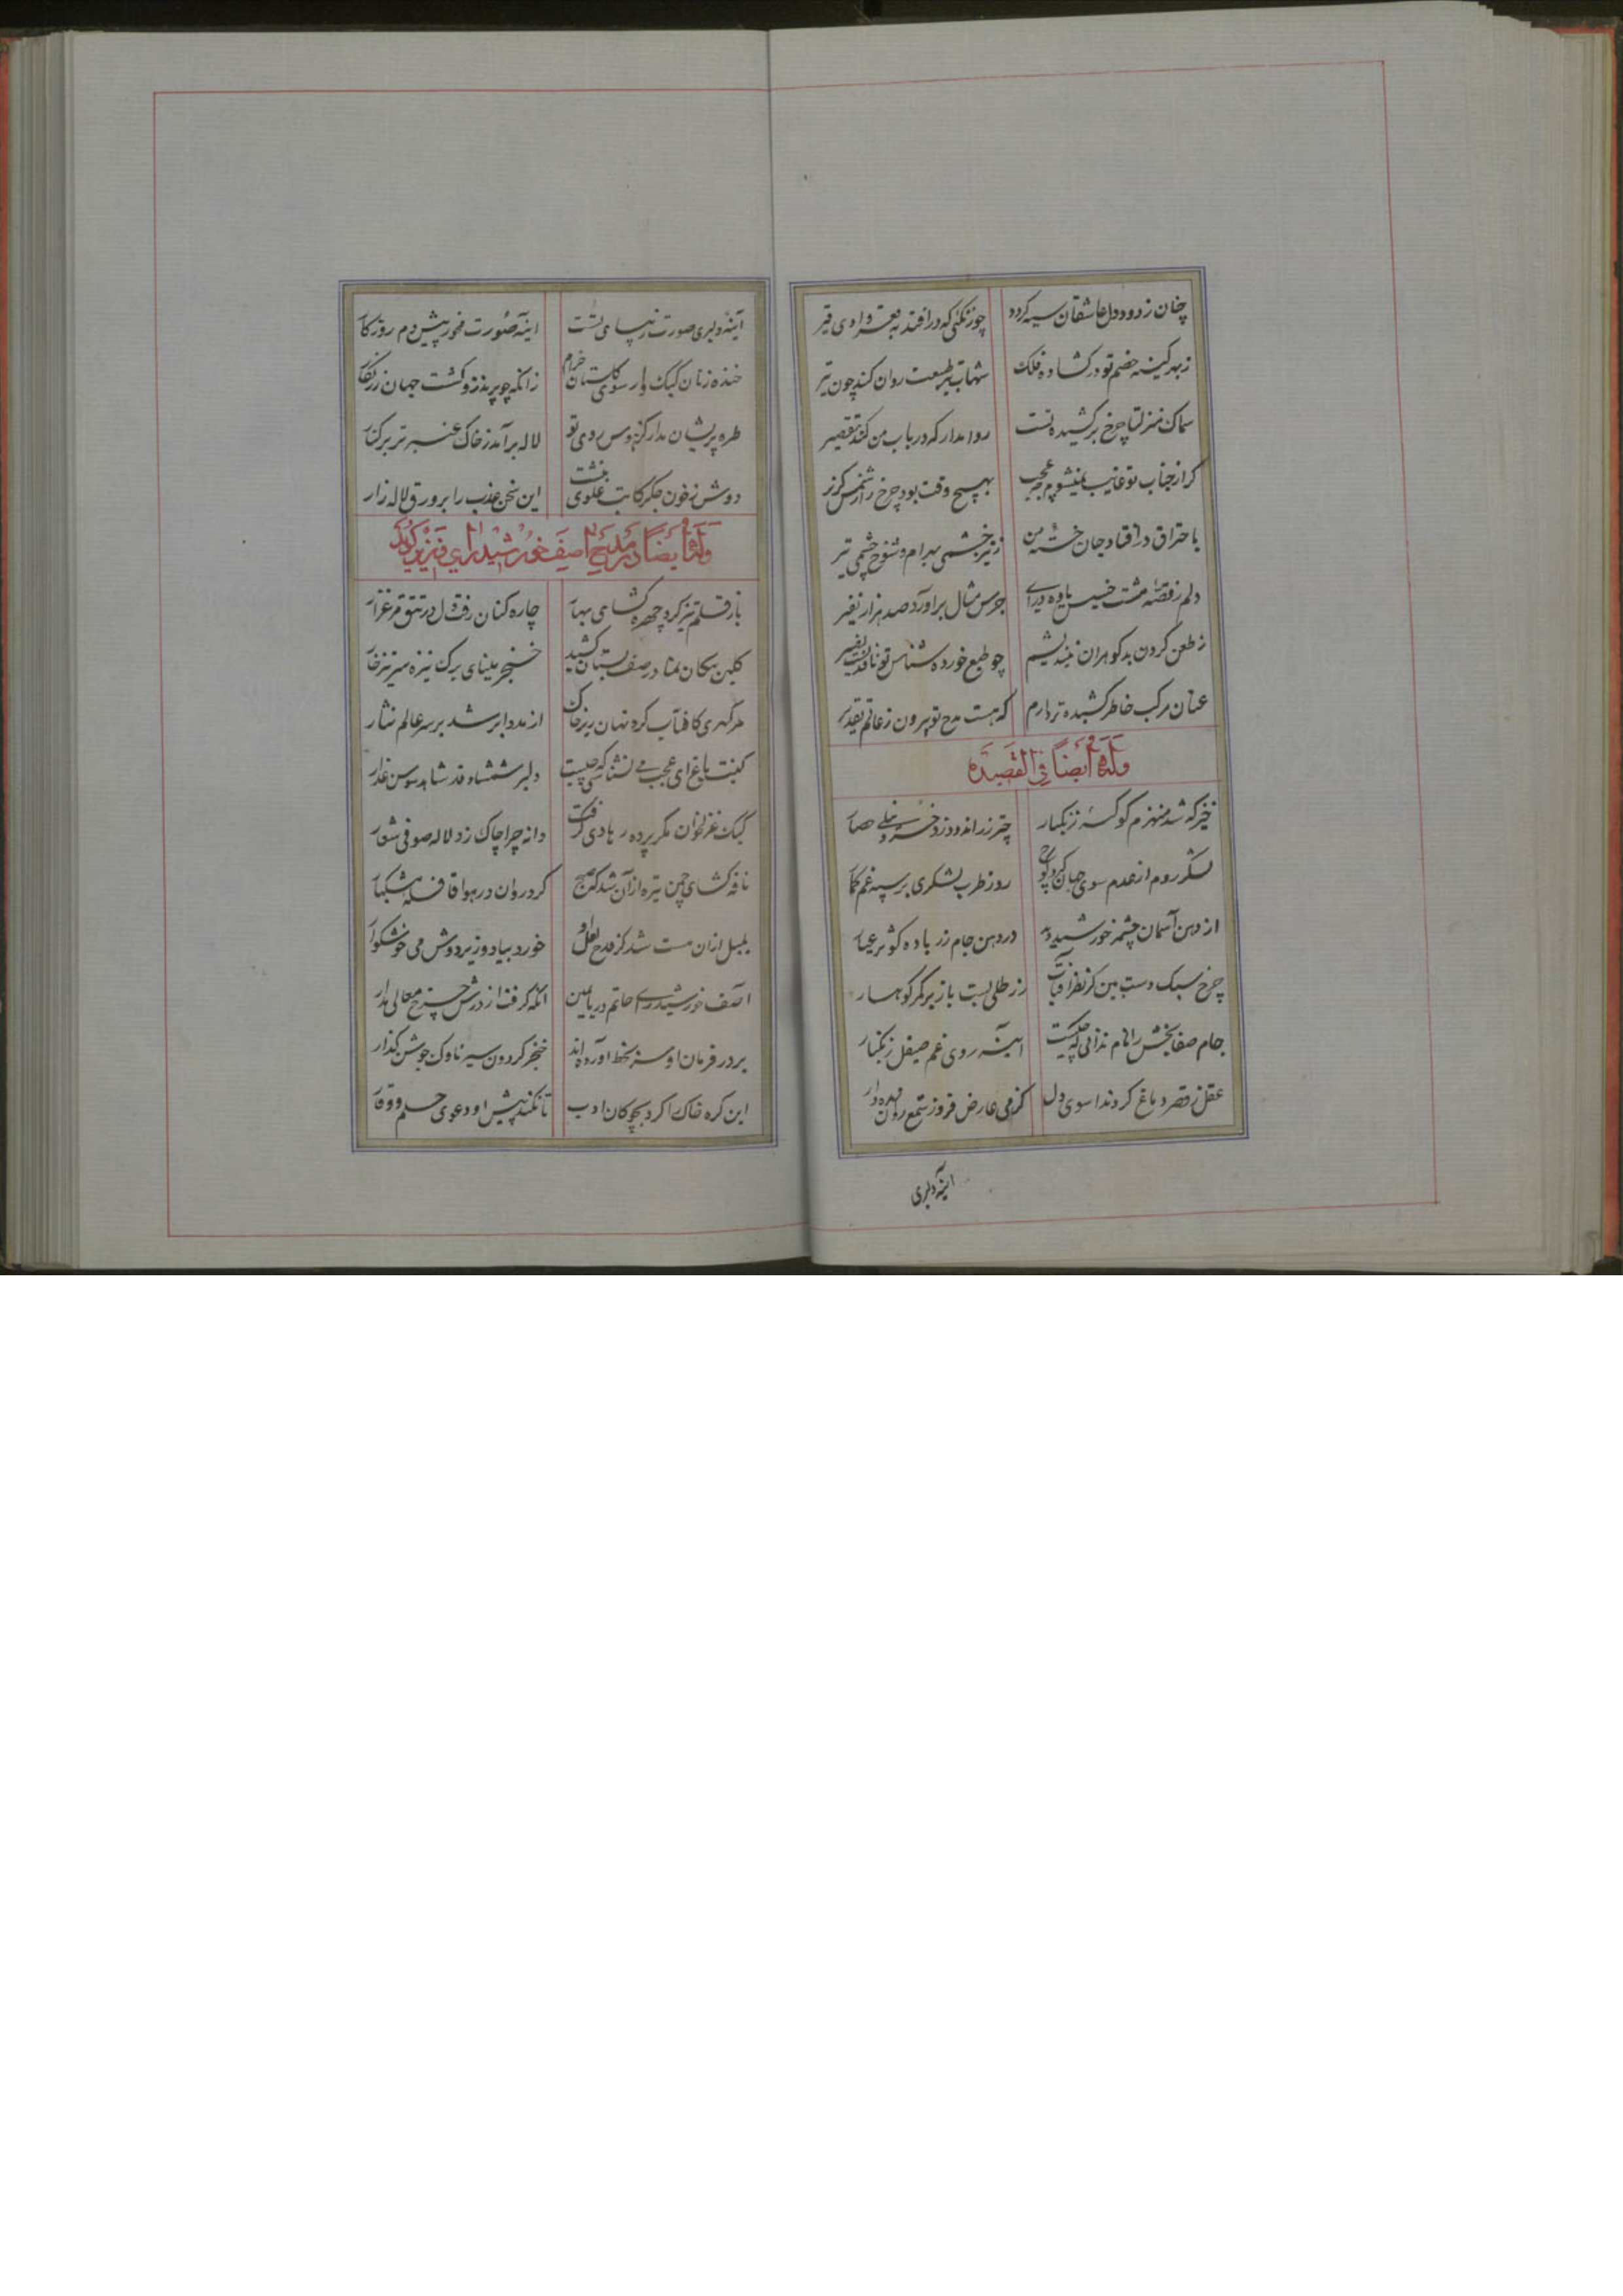 چنان ز دود دل عاشقان سیه گردد چو زنگئی که درافتد به قعر وادی قیر
ز بهر کینه خصم تو در کشاده فلک شهاب تیر طبیعت روان کند چون تیر
سماک منزلتا چرخ برکشیده تست روا مدار که در باب من کند تقصیر
کر از جناب تو غایب نمیشوم چه عجب بهیچ وقت نبود چرخ را ز شمس کزیر
باحتراق درافتاد جان خسته من ز تیر خشمی بهرام و شوخ چشمی تیر
دلم ز قصه مشت خسیس یاوه درای جرس مثال براورد صد هزار نفیر
ز طعن کردن بدکوهران نیندیشم چو طبع خورده شناس تو ناقدیست بصیر
عنان مرکب خاطر کشیده تر دارم که هست مدح تو بیرون ز عالم تقدیر
وله ایضا فی القصیده
خیز که شد منهزم کوکبه زنکبار چتر زراندود زد خسرو نیلی حصار
لشکر روم از عدم سوی جهان کرد کوچ روز طرب لشکری بر سپه غم کمار
از دهن آسمان چشمه خورشید زاد در دهن جام زر باده کوثر عیار
چرخ سبک دست بین کز نظر افتاب زر طلی بست باز بر کمر کوهسار
جام صفا بخش را نام ندانی که چیست اینه روی غم صیقل زنکبار
عقل ز قصر دماغ کرد ندا سوی دل کز می عارض فروز شمع روان زنده دار
اینه دلبری
آینه دلبری صورت زیبای تست اینه صورت فخر پیش دم روزکار
خنده زنان کبک وار سوی کلستان خرام زانکه چو پر تذرو کشت جهان زرنکار
طره پریشان مدار کز هوس روی تو لاله برآمد ز خاک عنبر تر بر کنار
دوش ز خون جکر کاتب علوی نبشت این سخن عذب را بر ورق لاله زار
وله ایضا در مدیح اصف خورشید رای وزیر کوید
باز قلم تیز کرد چهره کشای بهار چاره کنان رفت دل در تتق مرغزار
کلبن پیکان نما در صف بستان کشید خنجر مینای برک نیزه سرتیز خار
هر کهری کافتاب کرد نهان زیر خاک از مدد ابر شد بر سر عالم نثار
کیست بباغ ای عجب می نشناسی که چیست دلبر شمشاد قد شاهد سوسن عذار
کبک غزلخوان مکر پرده رهادی کرفت دانه چرا چاک زد لاله صوفی شعار
نافه کشای چمن تیره از آن شد که صبح کرد روان در هوا قافله مشکبار
بلبل ازان مست شد کز قدح لعل او خورد بیاد وزیر دوش می خوشکوار
آصف خورشید رای حاتم دریا یمین انکه کرفت از درش چرخ معالی مدار
بر در فرمان او سر بخط آورده اند خنجر کردون سپر ناوک جوشن کذار
این کره خاک را کرد بچوکان ادب تا نکند پیش او دعوی حلم و وقار